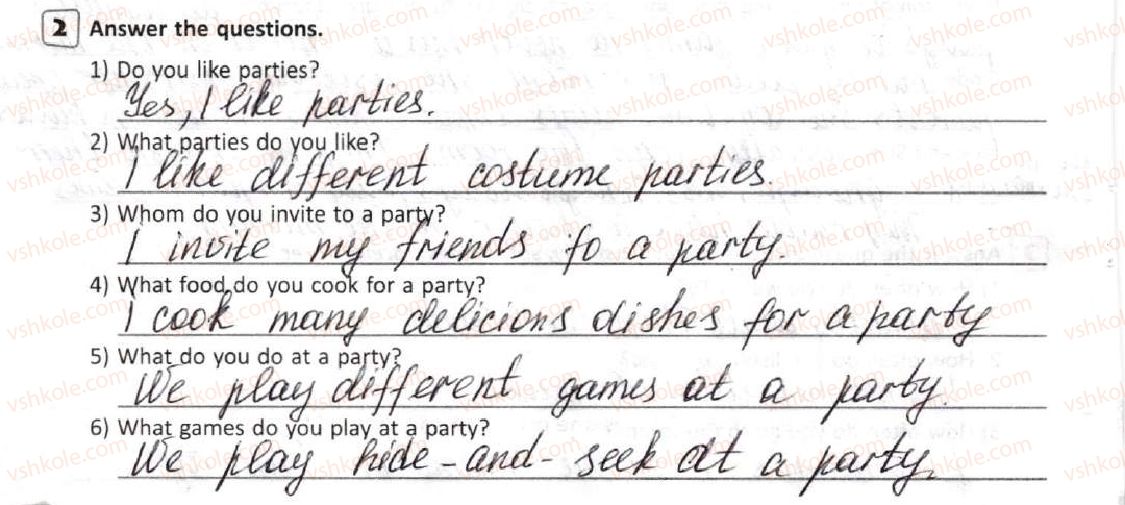 2 Answer the questions.
1) Do you like parties?
Yes, I like parties.
2) What parties do you like?
I like different costume parties.
3) Whom do you invite to a party?
I invite my friends to a party.
4) What food do you cook for a party?
I cook many delicions dishes for a party
5) What do you do at a party?
We play different games at a party.
6) What games do you play at a party?
We play hide-and-seek at a party.
vshkole.com